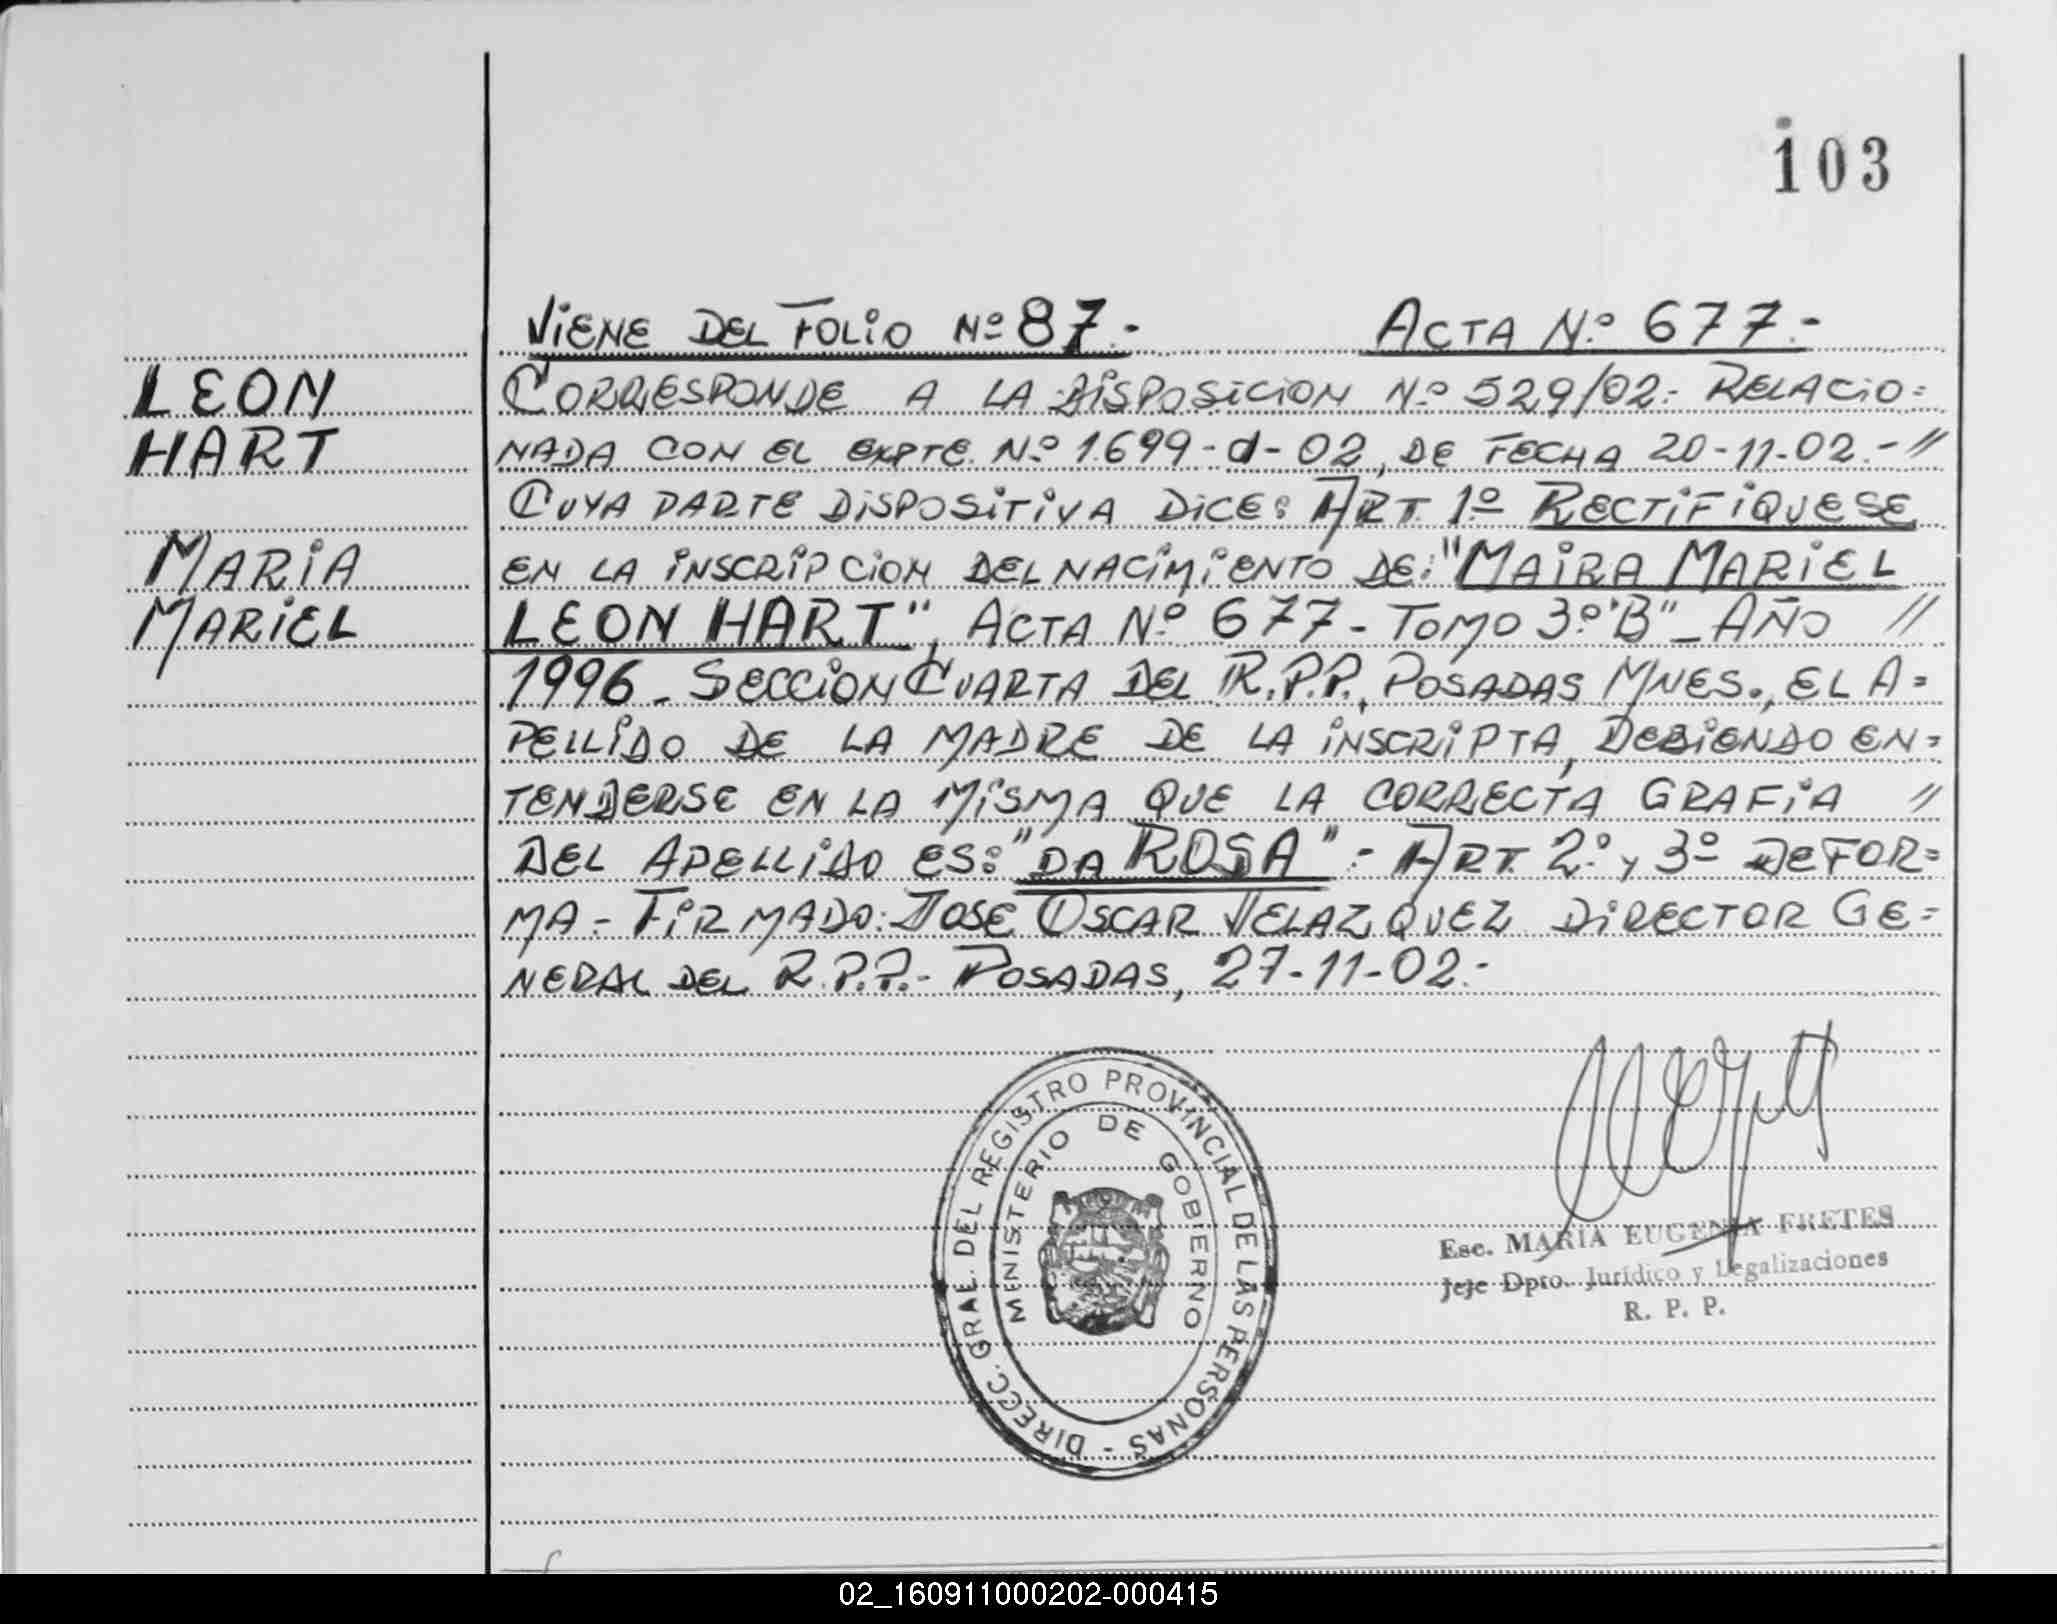 103
VIENE DEL FOLIO Nº 87.- ACTA Nº 677.-
LEON
HART
MARIA
MARIEL
CORRESPONDE A LA DISPOSICION Nº 529/02.- RELACIO=
NADA CON EL EXPTE. Nº 1.699-d-02, DE FECHA 20-11-02.-//
CUYA PARTE DISPOSITIVA DICE: ART. 1º RECTIFIQUESE
EN LA INSCRIPCION DEL NACIMIENTO DE: "MAIRA MARIEL
LEON HART", ACTA Nº 677- TOMO 3º"B"_ AÑO //
1996_ SECCION CUARTA DEL R.P.P., POSADAS MNES., EL A=
PELLIDO DE LA MADRE DE LA INSCRIPTA, DEBIENDO EN=
TENDERSE EN LA MISMA QUE LA CORRECTA GRAFIA //
DEL APELLIDO ES: "DA ROSA".- ART. 2º y 3º DE FOR=
MA - FIRMADO: JOSE OSCAR VELAZQUEZ DIRECTOR GE=
NERAL DEL R.P.P.- POSADAS, 27-11-02.-
DIRECC. GRAL. DEL REGISTRO PROVINCIAL DE LAS PERSONAS -
MINISTERIO DE GOBIERNO
Esc. MARIA EUGENIA FRETES
Jefe Dpto. Jurídico y Legalizaciones
R. P. P.
02_160911000202-000415